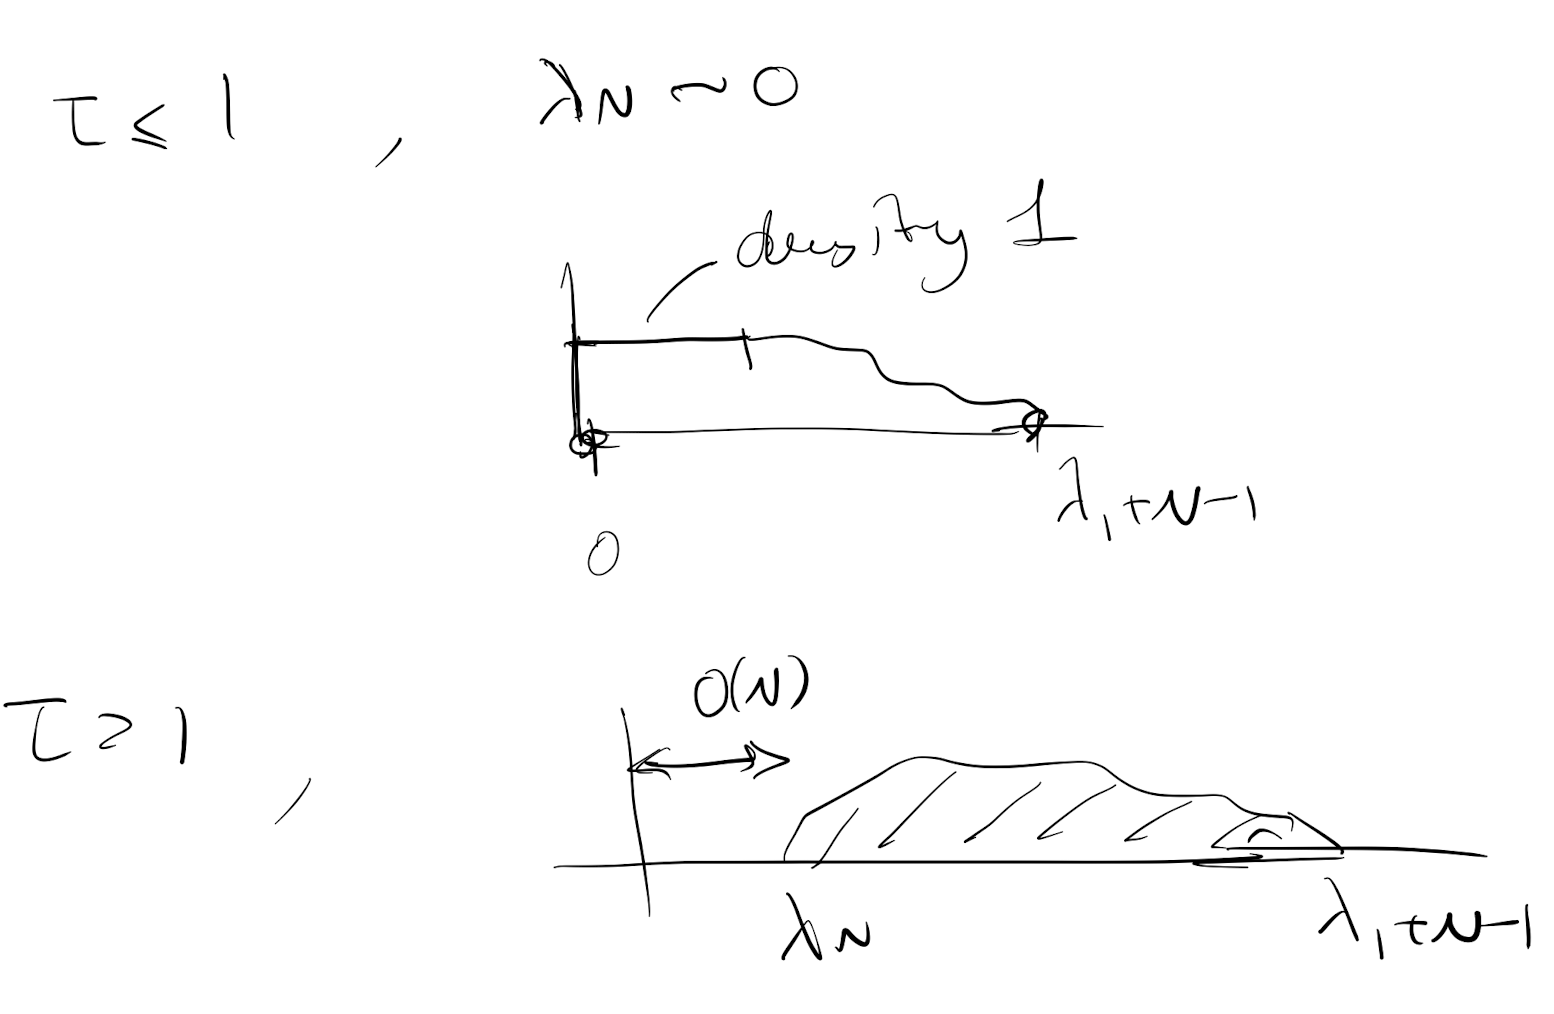 τ ≤ 1 , λN ~ 0
density 1
λ₁+N-1
0
O(N)
τ ≥ 1 ,
λN
λ₁+N-1